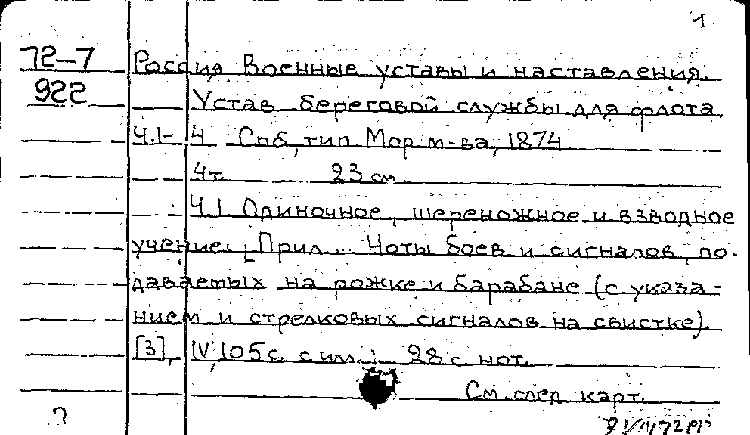 1
72-7 Россия Военные уставы и наставления.
922 Устав береговой службы для флота
Ч.1-4 Спб, тип Мор м-ва, 1874
4т. 23 см
Ч.1 Одиночное, шереножное и взводное
учение. Прил... Ноты боев и сигналов, по-
даваемых на рожке и барабане (с указа-
нием и стрелковых сигналов на свистке).
[3], IV, 105 с. с илл.; 28 с нот.
См. след карт.